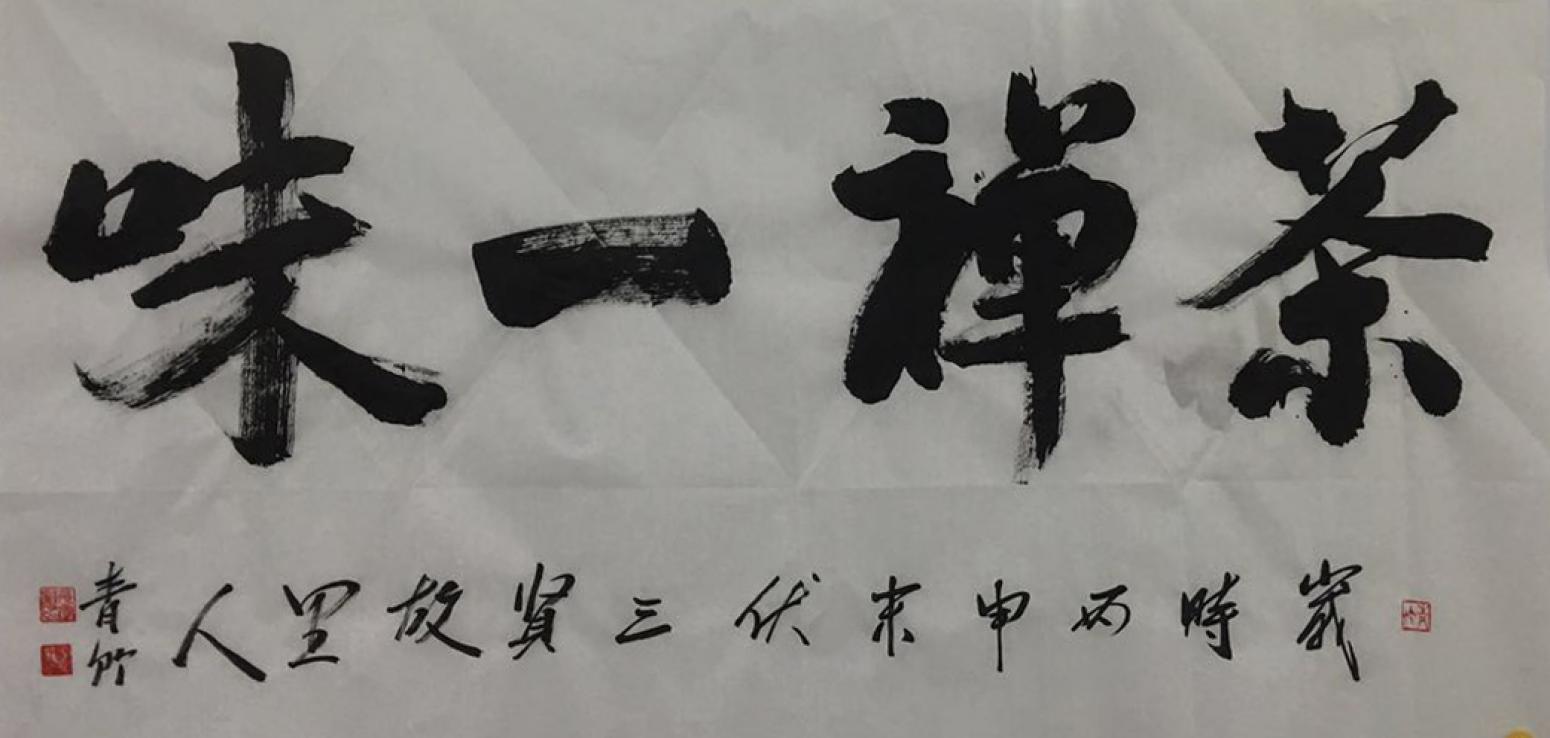 茶禅一味
歲時丙申末伏三賢故里人
青竹